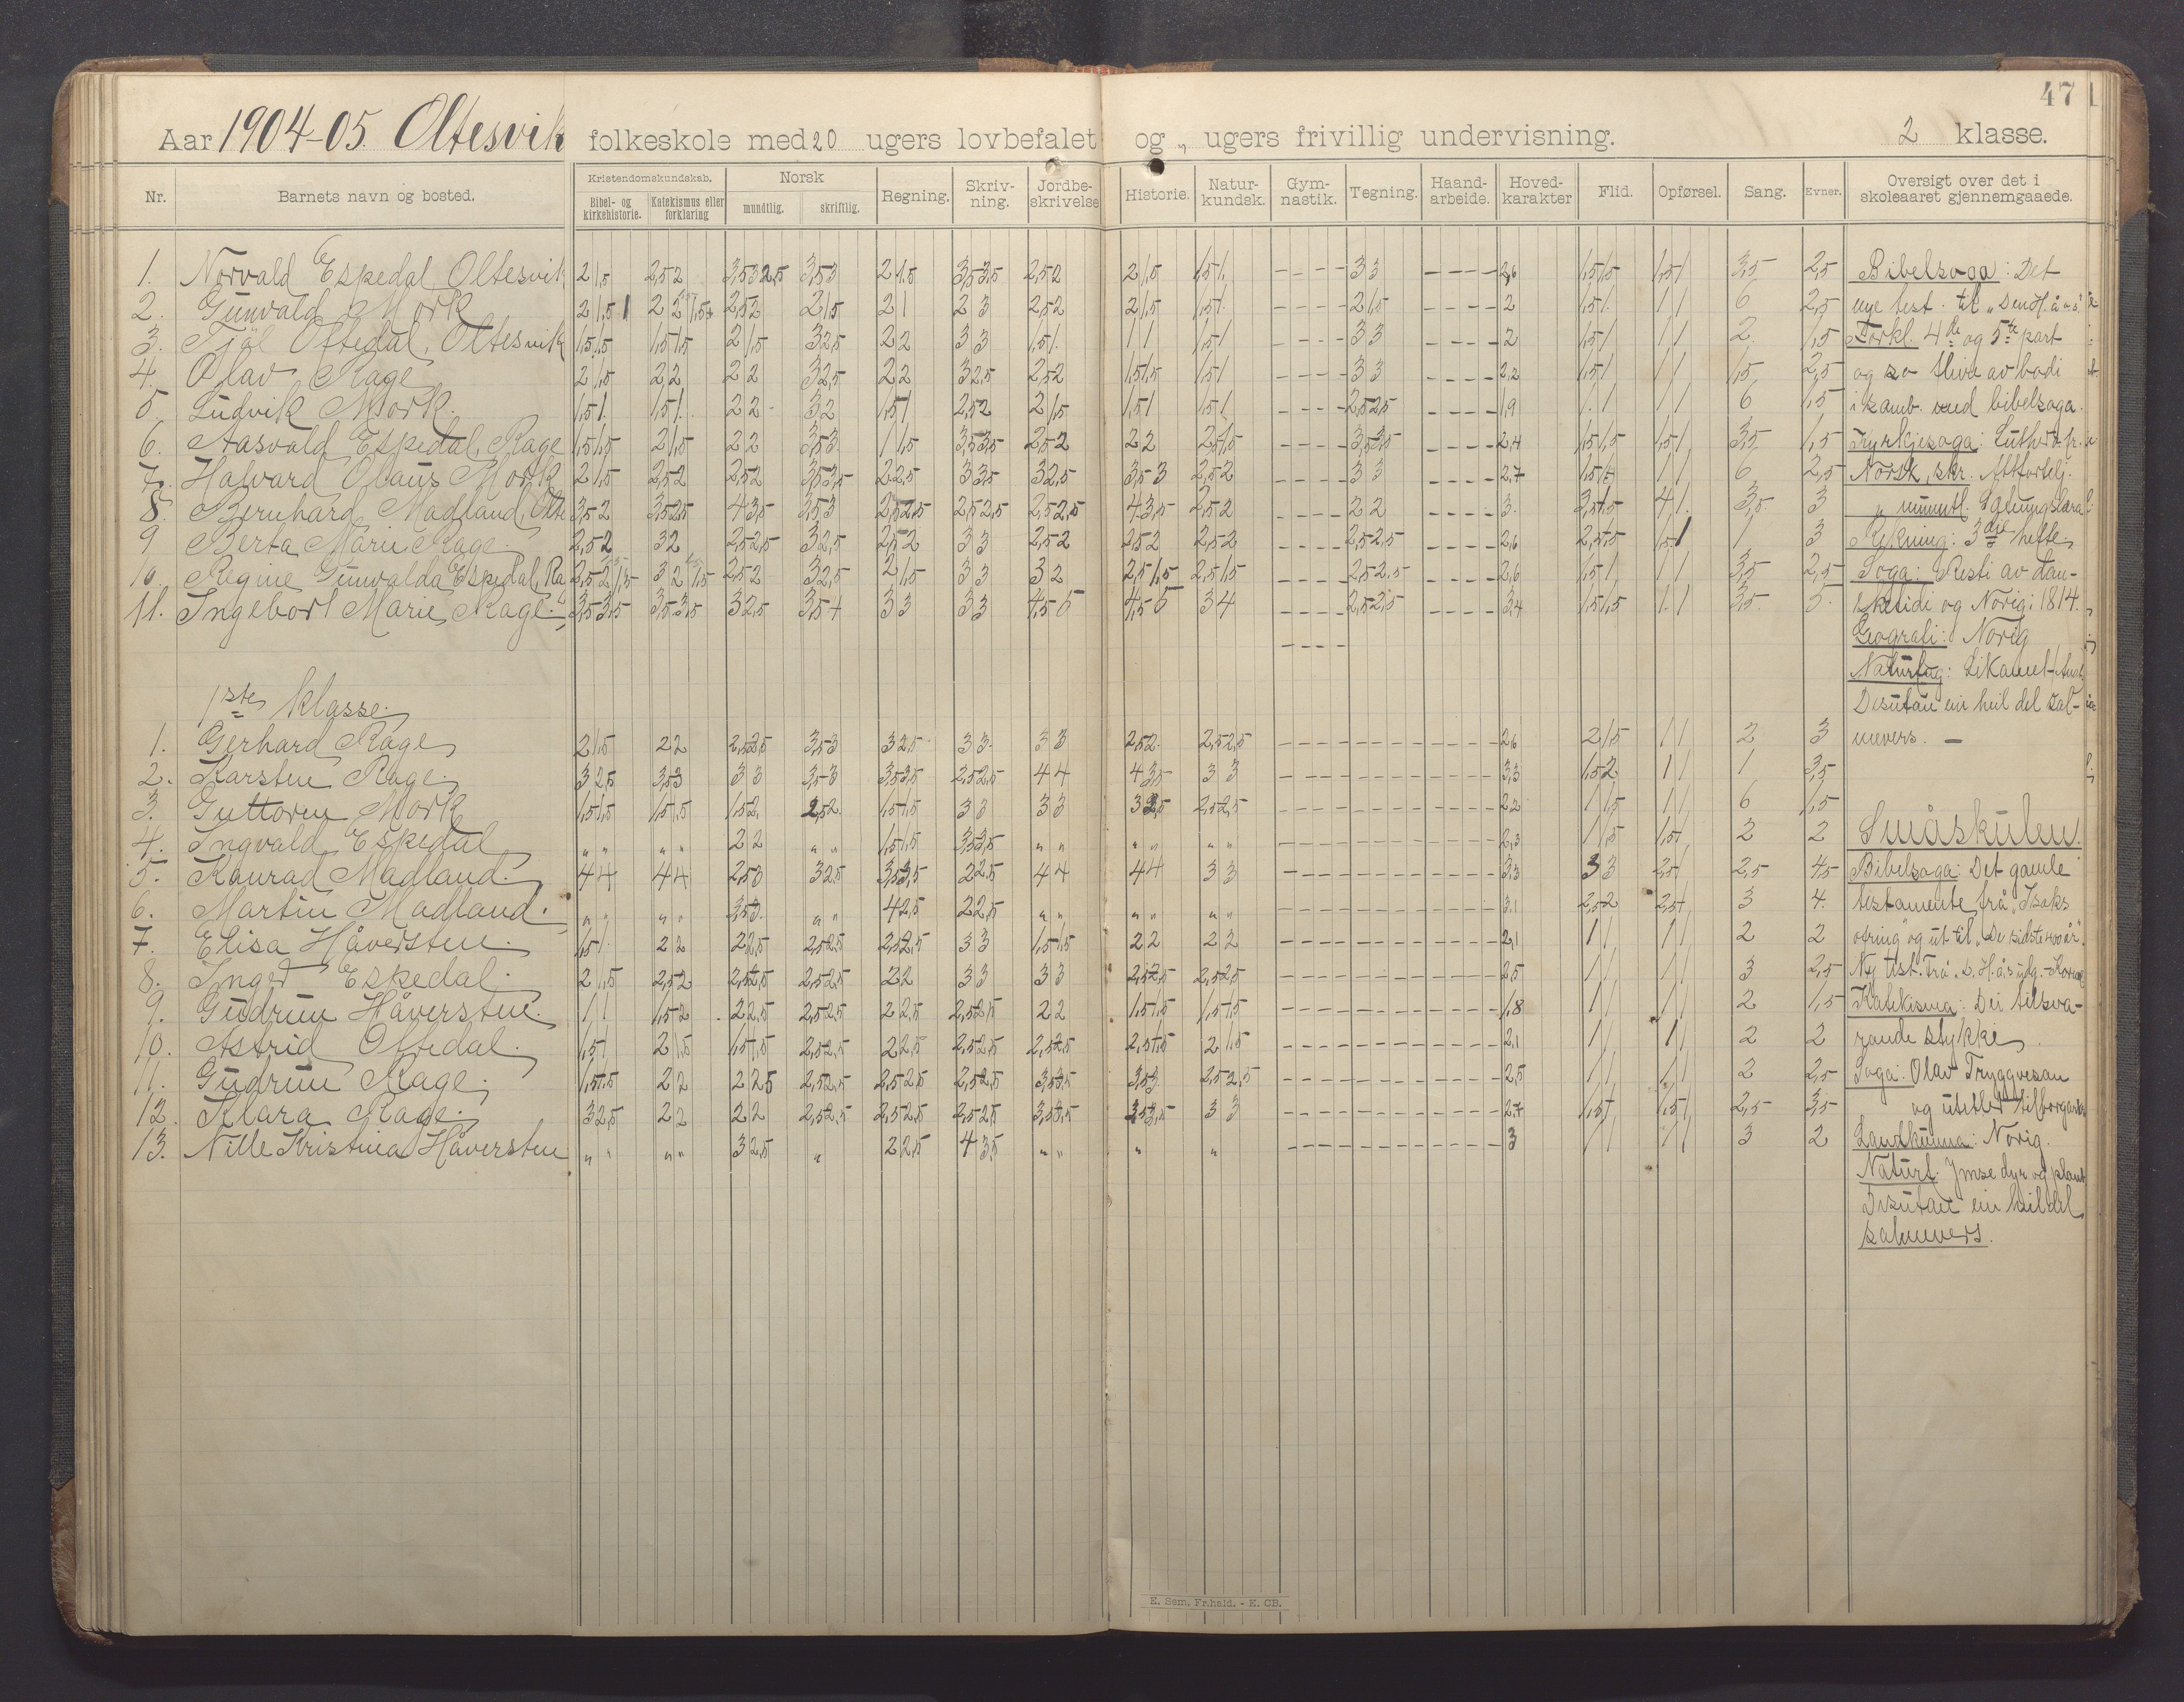 47
Aar 1904-05. Oltesvik folkeskole med 20 ugers lovbefalet og „ ugers frivillig undervisning. 2 klasse.
Nr. Barnets navn og bosted. Kristendomskundskab. Bibel- og kirkehistorie. Katekismus eller forklaring Norsk mundtlig. skriftlig. Regning. Skriv-ning. Jordbe-skrivelse Historie. Natur-kundsk. Gym-nastik. Tegning. Haand-arbeide. Hoved-karakter Flid. Opførsel. Sang. Evner. Oversigt over det i skoleaaret gjennemgaaede.
1. Norvald Espedal Oltesvik 2 1,5 2,5 2 3,5 3 2,5 3,5 3 2 1.5 3,5 3,5 2,5 2 2 1,5 1,5 1. - - - - 3 3 - - - - 2,6 1,5 1,5 1,5 1 3,5 2,5 Bibelsoga: Det
2. Gunvald Mork 2 1,5 1 2 2 1,5 2,5 2 2 1,5 2 1 2 3 2,5 2 2 1,5 1,5 1. - - - - 2 1,5 - - - - 2 1,5 1. 1 1 6 2,5 nye test. til „Den H. å
3. Oftedal, Oltesvik 1,5 1,5 1,5 1,5 2 1,5 3 2,5 2 2 3 3 1,5 1. 1 1 1,5 1 - - - - 3 3 - - - - 2 1,5 1 1 1 2. 1,5 Forkl. 4de og 5te part
4. Olav Rage 2 1,5 2 2 2 2 3 2,5 2 2 3 2,5 2,5 2 1,5 1,5 1,5 1 - - - - 3 3 - - - - 2,2 1,5 1 1 1 1,5 2,5 og so av bodi
5. Ludvik Mork. 1,5 1. 1,5 1. 2 2 3 2 1,5 1 2,5 2 2 1,5 1,5 1 1,5 1 - - - - 2,5 2,5 - - - - 1,9 1. 1 1 1 6 1,5 i samb. med bibelsoga.
6. Aasvald Espedal, Rage 1,5 1,5 2 1,5 2 2 3,5 3 1 1,5 3,5 3,5 2,5 2 2 2 2,5 1,5 - - - - 3,5 3,5 - - - - 2,4 1,5 1,5 1,5 1 3,5 1,5 Kyrkjesoga: Luther
7. Halvard Olaus Mork 2 1,5 2,5 2 2,5 2 3,5 3,5 2 2,5 3 3,5 3 2,5 3,5 3 2,5 2 - - - - 3 3 - - - - 2,7 1 1 6 2,5 Norsk, skr. Attfortelj.
8. Bernhard Madland, Olte 3,5 2 3,5 2,5 4 3,5 3,5 3 2,5 2,5 2,5 2,5 2,5 2,5 4 3,5 2,5 2 - - - - 2 2 - - - - 3. 3,5 1,5 4 1. 3,5 3 „ munntl.
9 Berta Marie Rage. 2,5 2 3 2 2,5 2,5 3 2,5 2,5 2 3 3 2,5 2 2,5 2 2,5 2 - - - - 2,5 2,5 - - - - 2,6 2,5 1,5 1,5 1 1 3 Rekning: 3die hefte.
10. Regine Gunvalda Espedal, Ra 2,5 2 1,5 3 2 1,5 2,5 2 3 2,5 2 1,5 3 3 3 2 2,5 1,5 2,5 1,5 - - - - 2,5 2,5 - - - - 2,6 1,5 1 1 1 3,5 2,5 Soga: Resti av dan-
11. Ingeborl Marie Rage. 3,5 3,5 3,5 3,5 3 2,5 3,5 4 3 3 3 3 4,5 5 4,5 5 3 4 - - - - 2,5 2,5 - - - - 3,4 1,5 1,5 1. 1 3,5. 5. sketidi og Norig i 1814.
- - - - Geografi: Norig
Naturfag: Likamet
1ste klasse. Desutan ein heil del sal-
1. Gerhard Rage 2 1,5 2 2 2,5 2,5 3,5 3 3 2,5 3 3 3 3 2,5 2. 2,5 2,5 - - - - - - - - - 2,6 2 1,5 1 1 2 3 mevers. —
2. Karsten Rage. 3 2,5 3,5 3 3 3 3,5 3 3,5 3,5 2,5 2,5 4 4 4 3,5 3 3 - - - - - - - - - 3,3 1,5 2 1 1 1 3,5
3. Guttorm Mork 1,5 1,5 1,5 1,5 1,5 2. 2,5 2. 1,5 1,5 3 3 3 3 3 2,5 2,5 2,5 - - - - - - - - - 2,2 1 1,5 1 1 6 1,5
4. Ingvald Espedal „ „ „ „ 2 2 „ „ 1,5 1,5 3,5 3,5 „ „ „ „ „ „ - - - - - - - - - 2,3 1 1,5 1,5 1 2 2 Småskulen.
5. Kanrad Madland. 4 4 4 4 2,5 3 3 2,5 3,5 3,5 2 2,5 4 4 4 4 3 3 - - - - - - - - - 3,3 3 3 2,5 1 2,5 4,5 Bibelsoga: Det gamle
6. Martin Madland. „ „ „ „ 3,5 3. „ „ 4 2,5 2 2,5 „ „ „ „ „ „ - - - - - - - - - 3,1 2,5 2 2,5 1 3 4. testamente frå „Isaks
7. Elisa Håversten. 1,5 1. 2 2 2 2,5 2,5 2,5 2,5 2,5 3 3 1,5 1,5 2 2 2 2 - - - - - - - - - 2,1 1 1 1 1 2 2 ofring" og ut til „De sidste 400 år".
8. Inger Espedal. 2 1,5 2,5 2 2,5 2,5 2,5 2,5 2 2 3 3 3 3 2,5 2,5 2,5 2,5 - - - - - - - - - 2,5 1 1 1 1 3 2,5 Ny test. frå
9. Gudrun Håversten. 1 1 1,5 2 2 2,5 2,5 2,5 2 2,5 2,5 2,5 2 2 1,5 1,5 1,5 1,5 - - - - - - - - - 1,8 1 1 1 1 2 1,5 Katekisma: Dei tilsva-
10. Astrid Oftedal. 1,5 1 2 1,5 1,5 1,5 2,5 2,5 2 2,5 2,5 2,5 2,5 2,5 2,5 1,5 2 1,5 - - - - - - - - - 2,1 1 1 1 1 2 2 rande stykke
11. Gudrun Rage. 1,5 1,5 2 2 2 2,5 2,5 2,5 2,5 2,5 2,5 2,5 3,5 3,5 3,5 3 2,5 2,5 - - - - - - - - - 2,5 1 1 1 1 2 2,5 Soga: Olav Tryggvesan
12. Klara Rage. 3 2,5 2 2 2 2 2,5 2,5 2,5 2,5 2,5 2,5 3,5 3,5 3,5 3,5 3 3 - - - - - - - - - 2,7 1,5 1 1,5 1 2,5 3,5 og
13. Nille Kristina Håversten „ „ „ „ 3 2,5 „ 2 2,5 4 3,5 „ „ „ „ - - - - - - - - - 3 1 1 1 1 3 2 Landkunna: Norig.
Naturf. Ymse dyr og plant
Desutan ein heil del
salmevers.
E. Sem, Fr.hald. - E. CB.